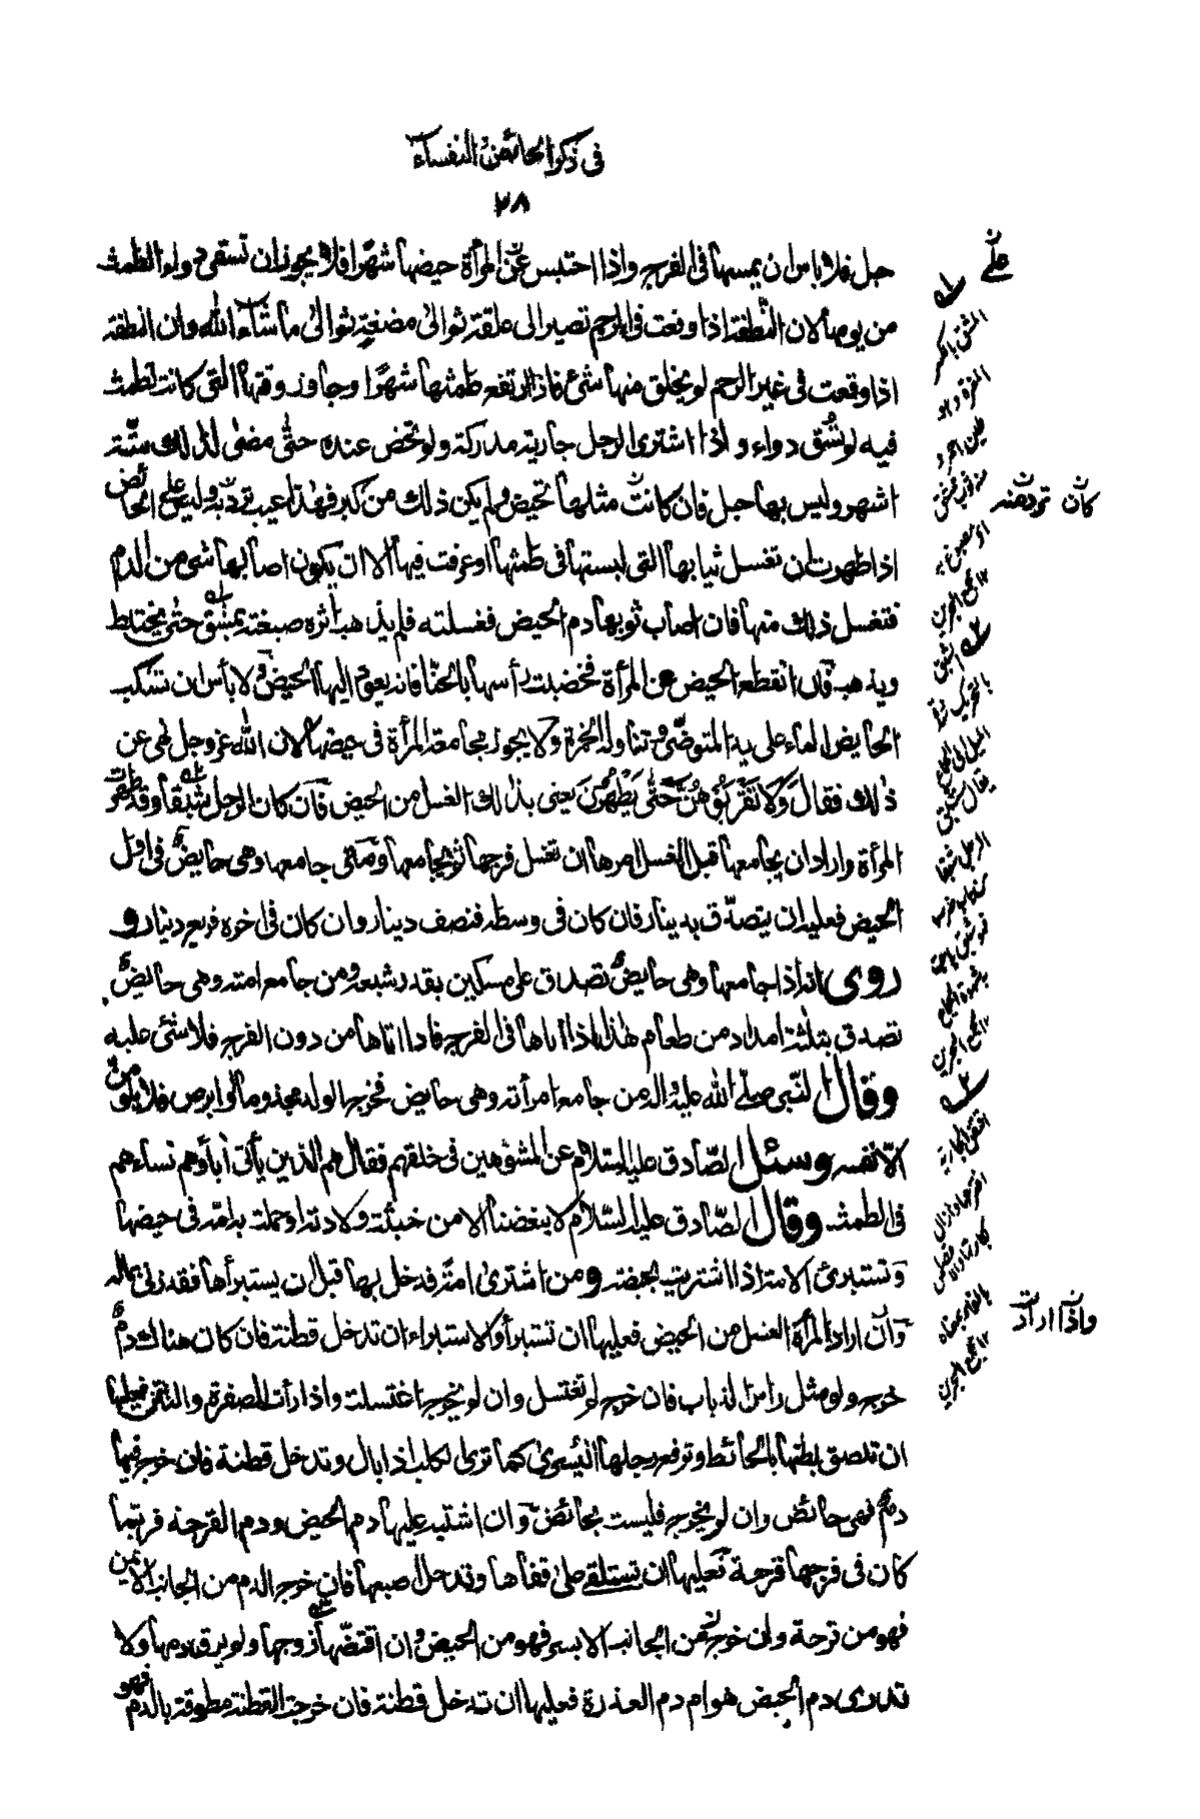 فى ذكر الحائض والنفساء
٢٨
حبل فلا باس ان يمسها فى الفرج واذا احتبس عن المرأة حيضها شهرا فلا يجوز ان تسقى دواء الطمث
من يومها لان النطفة اذا وقعت فى الرحم تصير الى علقة ثم الى مضغة ثم الى ما شاء الله وان النطفة
اذا وقعت فى غير الرحم لم يخلق منها شئ فاذا ارتفع طمثها شهرا وجاوز وقتها التى كانت تطمث
فيه لم تسق دواء واذا اشترى الرجل جارية مدركة ولم تحض عنده حتى مضى لذلك ستة
اشهر وليس بها حبل فان كانت مثلها تحيض ولم يكن ذلك من كبر فهذا عيب تردّ به وليس على الحائض
اذا طهرت ان تغسل ثيابها التى لبستها فى طمثها او عرقت فيها الا ان يكون اصابها شئ من الدم
فتغسل ذلك منها فان اصاب ثوبها دم الحيض فغسلته فلم يذهب اثره صبغته بمشق حتى يختلط
ويذهب فان انقطع الحيض عن المرأة فخضبت رأسها بالحنّا فانه يعود اليها الحيض ولا بأس ان تسكب
الحايض الماء على يد المتوضّئ وتناوله الخمرة ولا يجوز مجامعة المرأة فى حيضها لان الله عز وجل نهى عن
ذلك فقال وَلَا تَقْرَبُوهُنَّ حَتّٰى يَطْهُرْنَ يعنى بذلك الغسل من الحيض فان كان الرجل شبقا وقد طهرت
المرأة واراد ان يجامعها قبل الغسل امرها ان تغسل فرجها ثم يجامعها ومتى جامعها وهى حايض فى اول
الحيض فعليه ان يتصدّق بدينار فان كان فى وسطه فنصف دينار وان كان فى اخره فربع دينار و
روى انه اذا جامعها وهى حايض تصدق على مسكين بقدر شبعه ومن جامع امته وهى حايض
تصدق بثلثة امداد من طعام هذا اذا اتاها فى الفرج فاذا اتاها من دون الفرج فلا شئ عليه
وقال النبى صلى الله عليه واله من جامع امرأته وهى حايض فخرج الولد مجذوما او ابرص فلا يلومن
الا نفسه وسئل الصّادق عليه السّلام عن المشوّهين فى خلقهم فقال هم الذين يأتى آباؤهم نساءهم
فى الطمث وقال الصّادق عليه السّلام لا يبغضنا الا من خبثت ولادته او حملت به امّه فى حيضها
وتستبرئ الامة اذا اشتريت بحيضة ومن اشترى امة فدخل بها قبل ان يستبرأها فقد زنى بماله
وان اراد المرأة الغسل من الحيض فعليها ان تستبرأ والاستبراء ان تدخل قطنة فان كان هناك دم
خرج ولو مثل راس الذباب فان خرج لم تغتسل وان لم يخرج اغتسلت واذا رأت الصفرة والنتن فعليها
ان تلصق بطنها بالحائط وترفع رجلها اليسرى كما ترى الكلب اذا بال وتدخل قطنة فان خرج فيها
دم فهى حائض وان لم يخرج فليست بحائض وان اشتبه عليها دم الحيض ودم القرحة فربّما
كان فى فرجها قرحة فعليها ان تستلقى على قفاها وتدخل اصبعها فان خرج الدم من الجانب الايمن
فهو من قرحة وان خرج من الجانب الايسر فهو من الحيض وان اقتضّها زوجها ولم يرق دمها ولا
تدرى دم الحيض هو ام دم العذرة فعليها ان تدخل قطنة فان خرجت القطنة مطوقة بالدم فهو
كان تردهنه
واذا ارادت